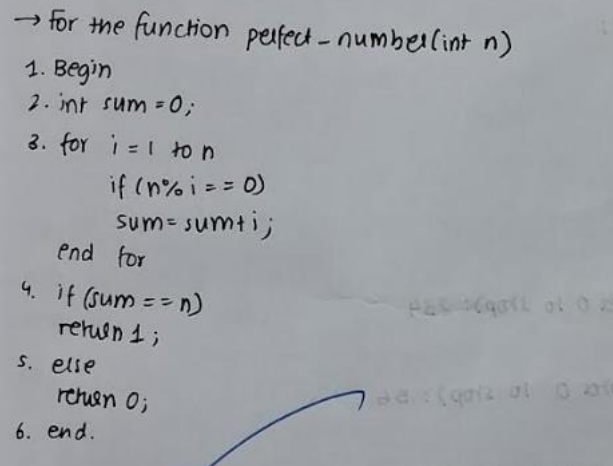 → for the function perfect-number(int n)
1. Begin
2. int sum = 0;
3. for i = 1 to n
if (n% i == 0)
sum = sum+i;
end for
4. if (sum == n)
return 1;
5. else
return 0;
6. end.